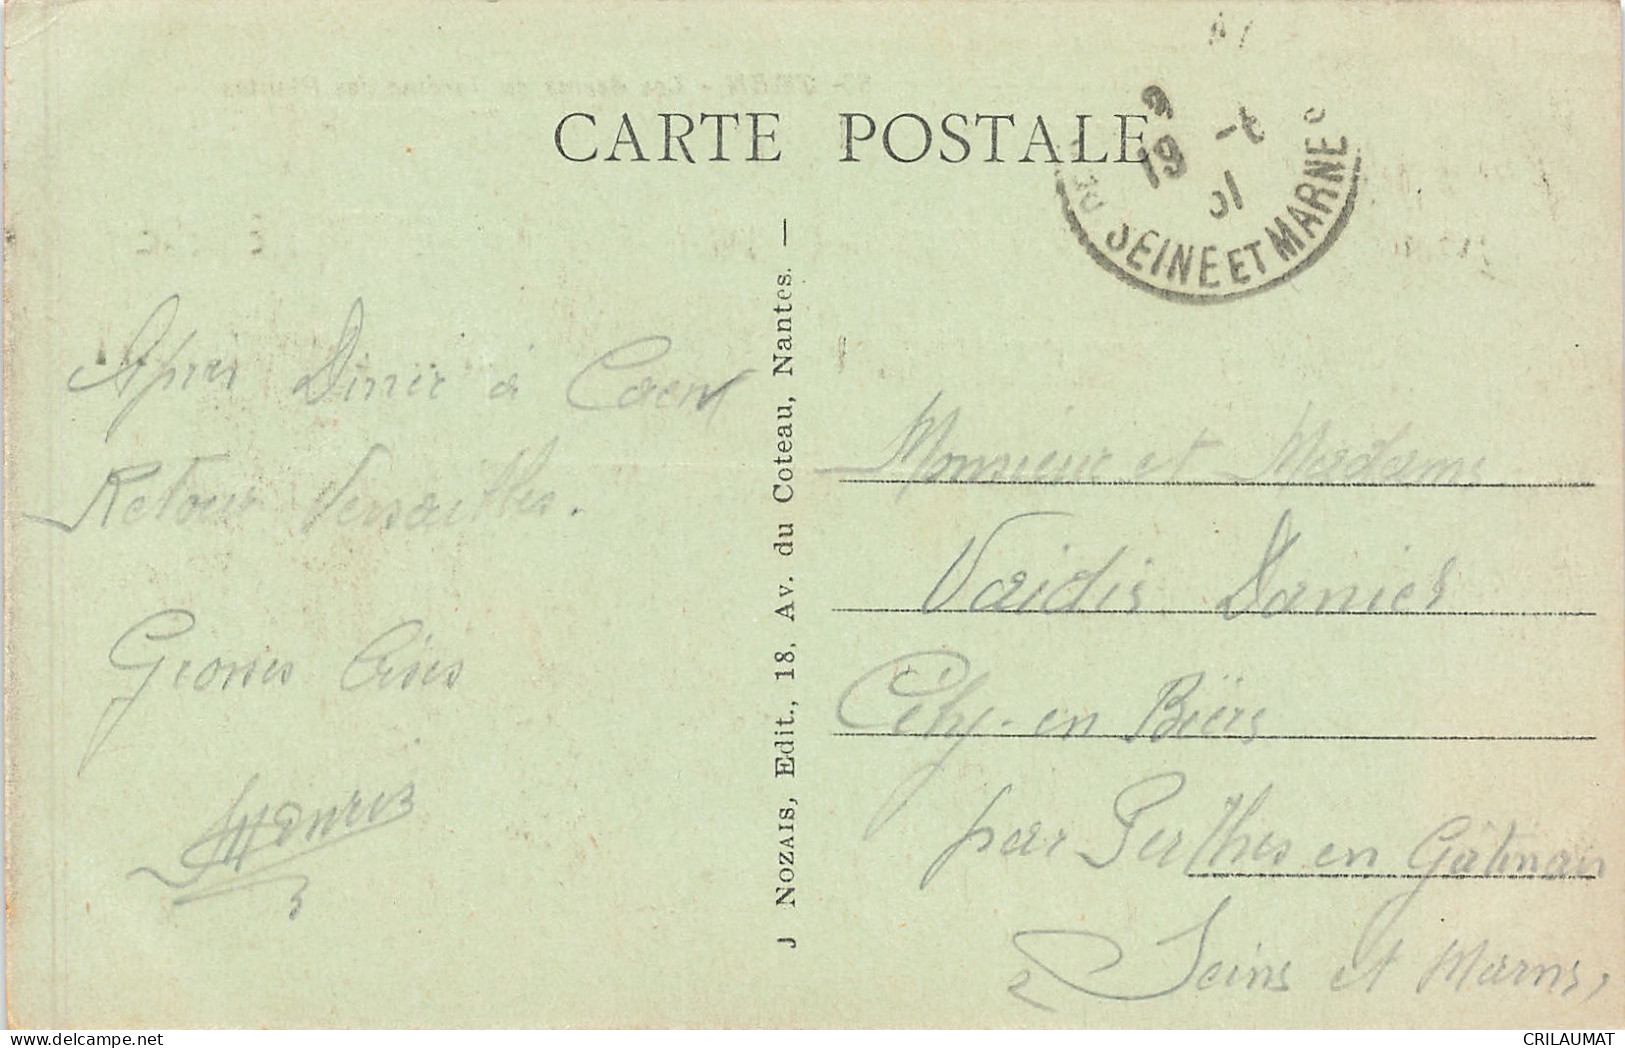 CARTE POSTALE
SEINE ET MARNE
19
Après Diner à Caen
Retour Versailles.
Grosses Bises
J NOZAIS, Edit., 18, Av. du Coteau, Nantes. —
Monsieur et Madame
Vaidis Daniel
Cély-en Bière
par Perthes en Gâtinais
Seine et Marne,
CRILAUMAT